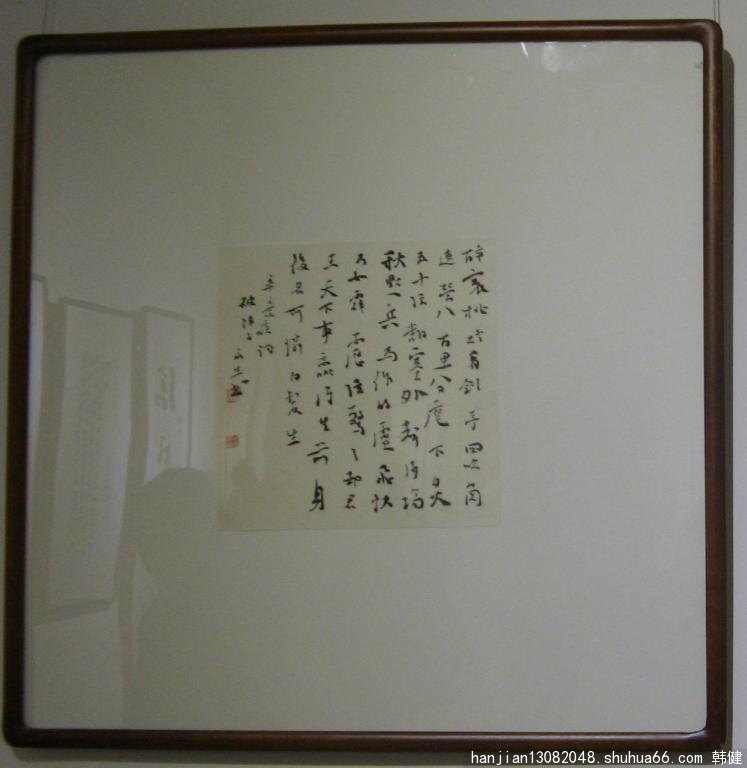 醉裏挑灯看劍夢回吹角
連營八百里分麾下炙
五十弦翻塞外聲沙場
秋點兵馬作的盧飛快
弓如霹靂弦驚了却君
王天下事贏得生前身
後名可憐白髮生
辛棄疾詞
破陣子
hanjian13082048.shuhua66.com 韩健